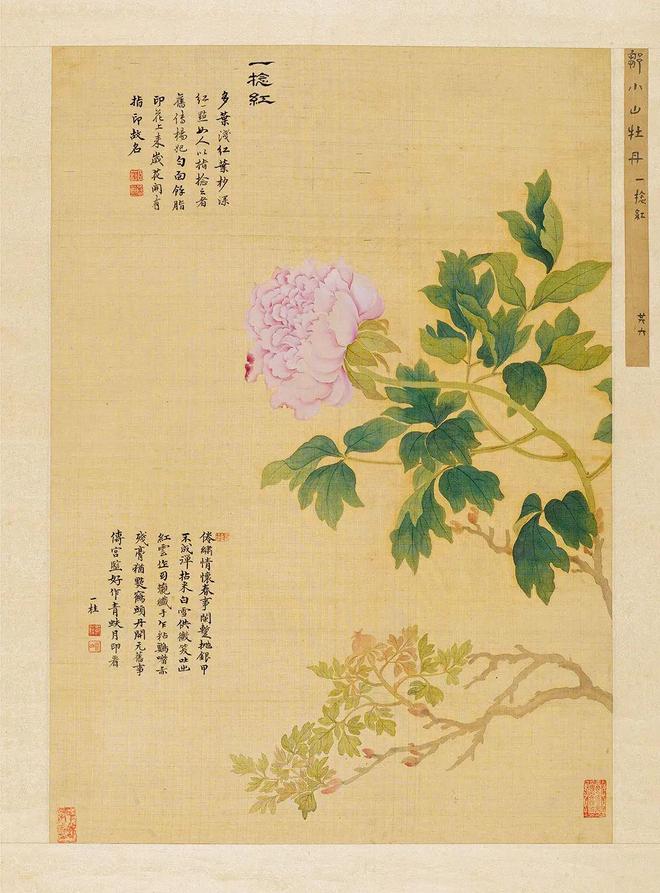 鄒小山牡丹一捻紅
六
一捻紅
多葉淺紅葉杪深
紅一點如人以指捻之者
舊傳楊妃勻面餘脂
印花上来歲花開有
指印故名
倦繡情懷春事闌挑銀甲
不成彈拈来白雪供微笑吐出
紅雲觀纖手乍粘鸚嘴赤
殘膏猶艷鶴頭丹開元舊事
傳宮監好作青蚨月印看
一柱